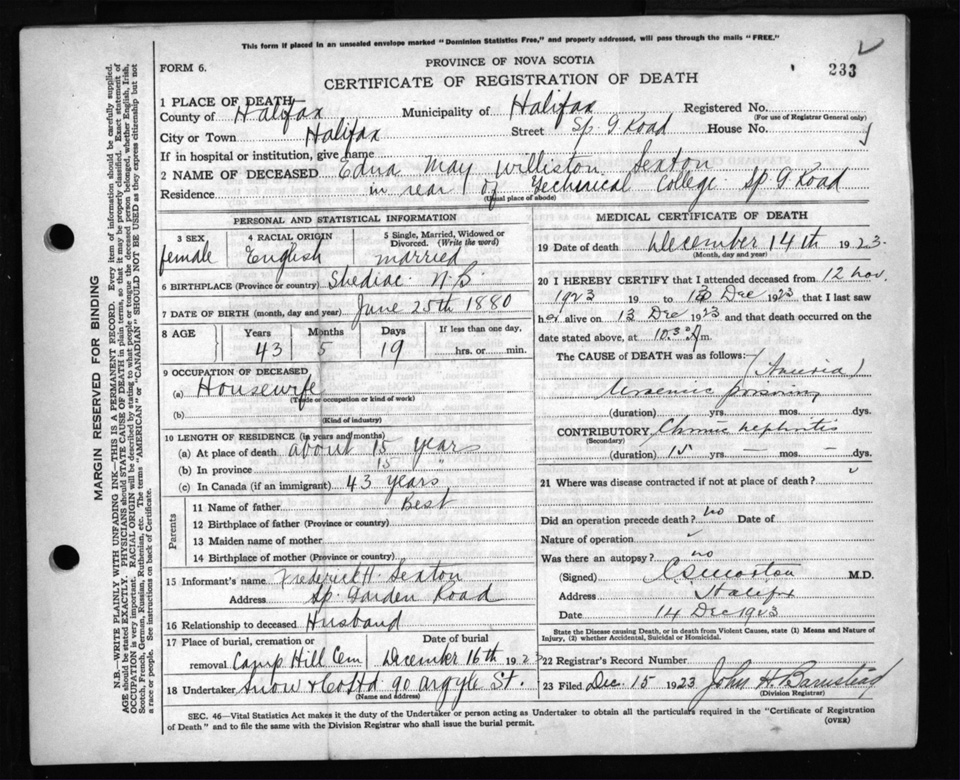 This form if placed in an unsealed envelope marked "Dominion Statistics Free," and properly addressed, will pass through the mails "FREE."
PROVINCE OF NOVA SCOTIA
FORM 6.
CERTIFICATE OF REGISTRATION OF DEATH
233
1 PLACE OF DEATH
County of Halifax Municipality of Halifax Registered No.
(For use of Registrar General only)
City or Town Halifax Street Sp. G Road House No.
If in hospital or institution, give name
2 NAME OF DECEASED Edna May Williston Sexton
Residence in rear of Technical College Sp G Road
(Usual place of abode)
PERSONAL AND STATISTICAL INFORMATION
3 SEX 4 RACIAL ORIGIN 5 Single, Married, Widowed or Divorced. (Write the word)
female English married
6 BIRTHPLACE (Province or country) Shediac N.B.
7 DATE OF BIRTH (month, day and year) June 25th 1880
8 AGE Years Months Days If less than one day,
43 5 19 hrs. or min.
9 OCCUPATION OF DECEASED
(a) Housewife
(Trade or occupation or kind of work)
(b)
(Kind of industry)
10 LENGTH OF RESIDENCE (in years and months)
(a) At place of death about 15 years
(b) In province 15 "
(c) In Canada (if an immigrant) 43 years
Parents
11 Name of father Best
12 Birthplace of father (Province or country)
13 Maiden name of mother
14 Birthplace of mother (Province or country)
15 Informant's name Frederick H. Sexton
Address Sp. Garden Road
16 Relationship to deceased Husband
17 Place of burial, cremation or Date of burial
removal Camp Hill Cem December 16th 1923
18 Undertaker Snow & Co Ltd 90 Argyle St.
(Name and address)
MEDICAL CERTIFICATE OF DEATH
19 Date of death December 14th 1923.
(Month, day and year)
20 I HEREBY CERTIFY that I attended deceased from 12 Nov.
1923 19 to 13 Dec 1923 that I last saw
her alive on 13 Dec 1923 and that death occurred on the
date stated above, at 10.30 A m.
The CAUSE of DEATH was as follows:
Uraemic poisoning
(duration) yrs. mos. dys.
CONTRIBUTORY Chronic nephritis
(Secondary)
(duration) 15 yrs. — mos. — dys.
21 Where was disease contracted if not at place of death?
Did an operation precede death? no Date of
Nature of operation
Was there an autopsy? no
(Signed) M.D.
Address Halifax
Date 14 Dec 1923
State the Disease causing Death, or in death from Violent Causes, state (1) Means and Nature of
Injury, (2) whether Accidental, Suicidal or Homicidal.
22 Registrar's Record Number
23 Filed Dec. 15 1923 John H. Barnstead
(Division Registrar)
SEC. 46—Vital Statistics Act makes it the duty of the Undertaker or person acting as Undertaker to obtain all the particulars required in the "Certificate of Registration
of Death" and to file the same with the Division Registrar who shall issue the burial permit.
(OVER)
MARGIN RESERVED FOR BINDING
N.B.—WRITE PLAINLY WITH UNFADING INK—THIS IS A PERMANENT RECORD. Every item of information should be carefully supplied.
AGE should be stated EXACTLY. PHYSICIANS should STATE CAUSE OF DEATH in plain terms, so that it may be properly classified. Exact statement of
OCCUPATION is very important. RACIAL ORIGIN will be described by stating to what people or tongue the deceased person belonged, whether English, Irish,
Scotch, French, German, Russian, Ruthenian, etc. The terms "AMERICAN" or "CANADIAN" SHOULD NOT BE USED as they express citizenship but not
a race or people. See instructions on back of Certificate.